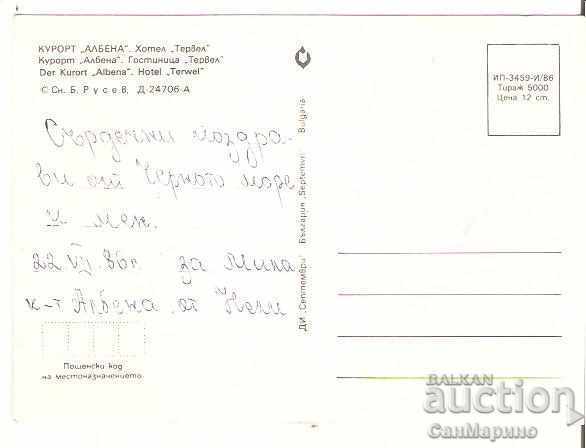 КУРОРТ „АЛБЕНА". Хотел „Тервел"
Курорт „Албена". Гостиница „Тервел"
Der Kurort „Albena". Hotel „Terwel"
© Сн. Б. Русев, Д-24706-А
Сърдечни поздра-
ви от Черното море
и мен.
22 VII 86г. за Мила
к-т Албена от Нели
Пощенски код
на местоназначението
ДИ „Септември" България „Septemvri" Bulgaria
ИП-3459-И/86
Тираж 5000
Цена 12 ст.
BALKAN
auction
СанМарино